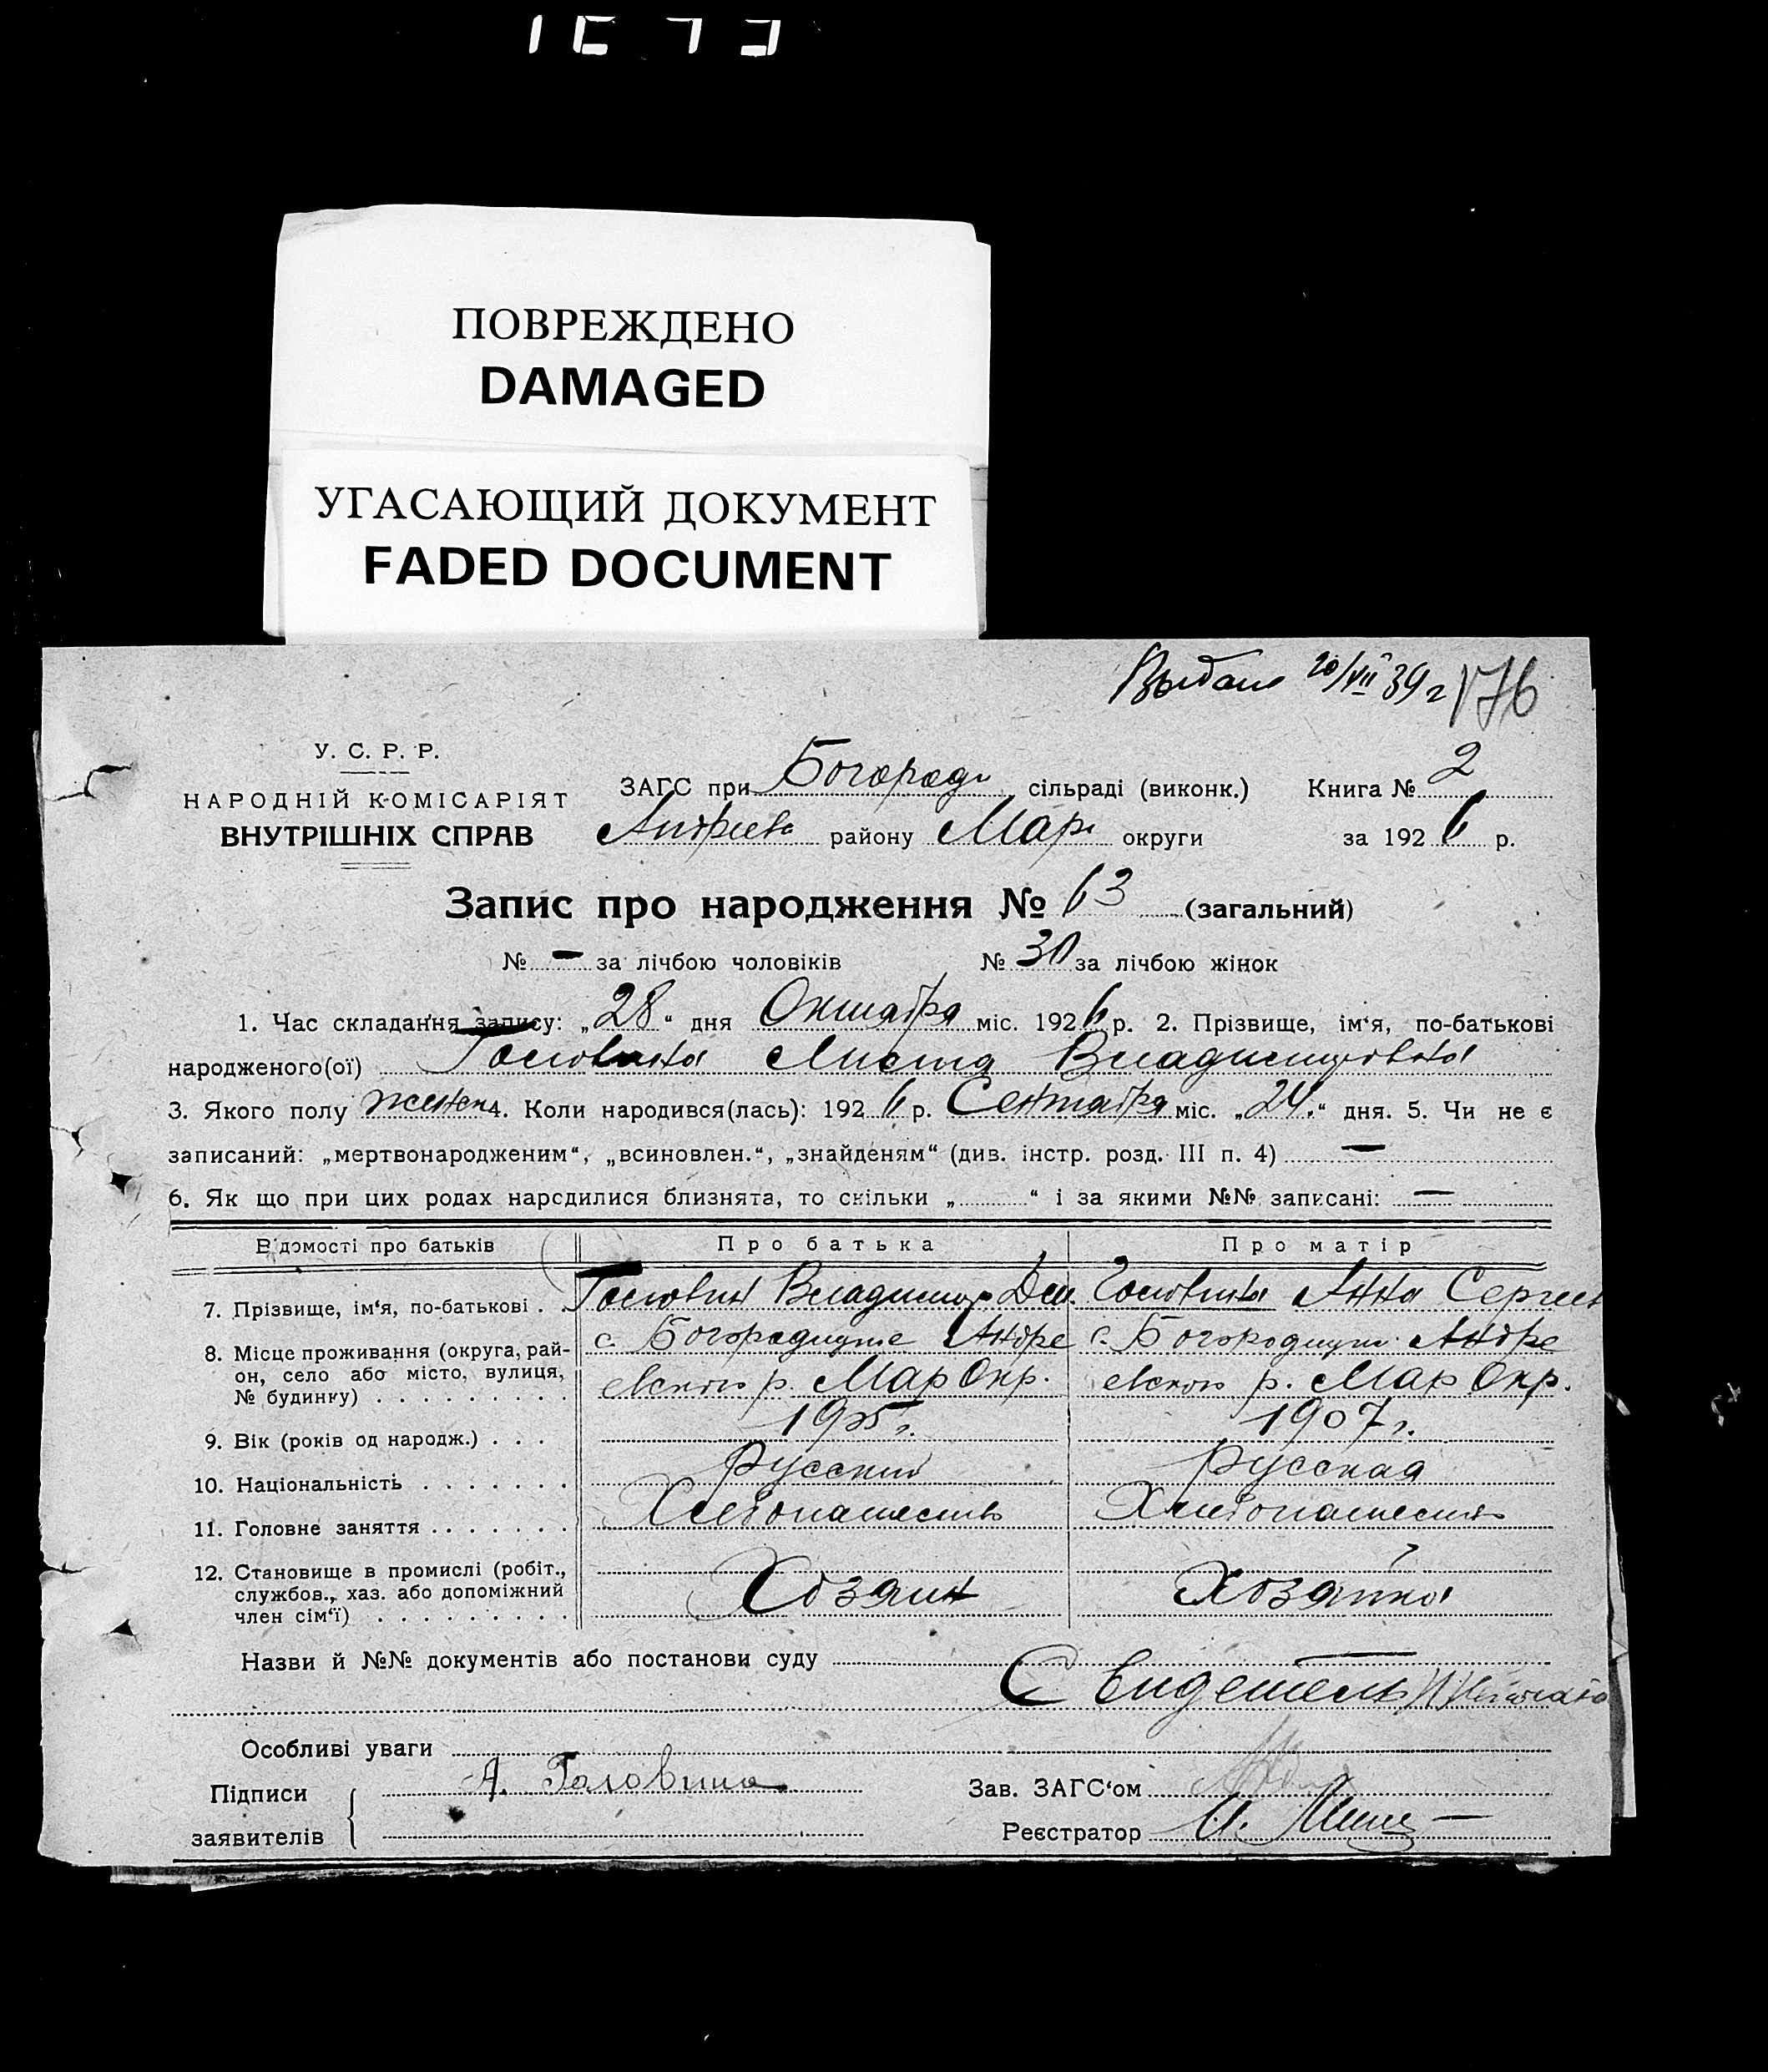 ПОВРЕЖДЕНО
DAMAGED
УГАСАЮЩИЙ ДОКУМЕНТ
FADED DOCUMENT
Выдано 20/VII 39 г 176
У. С. Р. Р.
НАРОДНІЙ КОМІСАРІЯТ
ВНУТРІШНІХ СПРАВ
ЗАГС при Богород. сільраді (виконк.) Книга № 2
Андреев. району Мар. округи за 1926 р.
Запис про народження № 63 (загальний)
№ — за лічбою чоловіків № 30 за лічбою жінок
1. Час складання запису: „28“ дня Октября міс. 1926 р. 2. Прізвище, ім‘я, по-батькові
народженого(ої) Головина Владимировна
3. Якого полу женск 4. Коли народився(лась): 1926 р. Сентября міс. „24.“ дня. 5. Чи не є
записаний: „мертвонародженим“, „всиновлен.“, „знайденям“ (див. інстр. розд. III п. 4) —
6. Як що при цих родах народилися близнята, то скільки „ “ і за якими №№ записані: —
Відомості про батьків Про батька Про матір
7. Прізвище, ім‘я, по-батькові . . Головин Владимир Дм. Головина Анна Сергеев
8. Місце проживання (округа, рай-он, село або місто, вулиця, № будинку) с. Богородицне Андре с. Богородицн. Андре
евского р. Мар Окр. евского р. Мар Окр.
9. Вік (років од народж.) . . . 1905 г. 1907 г.
10. Національність Русский Русская
11. Головне заняття Хлебопашество Хлебопашество
12. Становище в промислі (робіт., службов., хаз. або допоміжний член сім‘ї) Хозяин Хозяйка
Назви й №№ документів або постанови суду
Свидетель
Особливі уваги
Підписи заявителів А. Головина
Зав. ЗАГС‘ом
Реєстратор И.